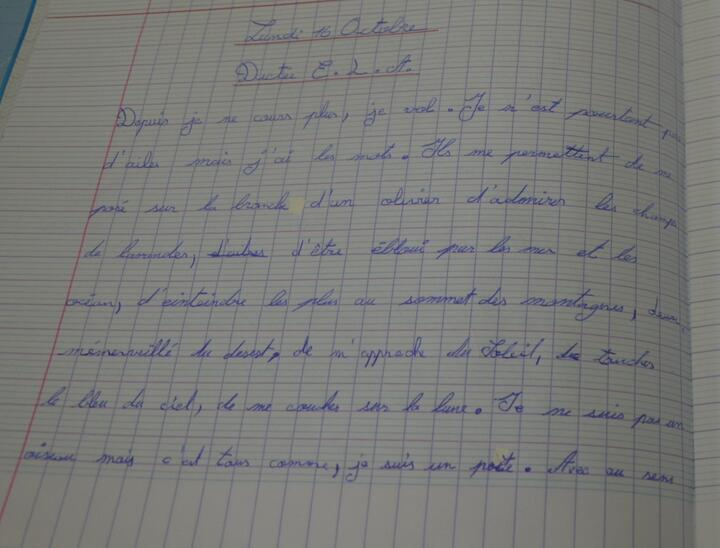 Lundi 16 Octobre
Dictée E. L. A.
Depuis je ne cours plus, je vol. Je n'est pourtant pas
d'ailes mais j'ai les mots. Ils me permettent de me
posé sur la branche d'un olivier d'admirer les champs
de lavandes, d'être ébloui par les mer et les
océan, d'einteindre les plus au sommet des montagnes,
mémerveillé du desert, de m'approche du Soleil, toucher
le bleu du ciel, de me coucher sur la lune. Je ne suis pas un
oiseau mais c'est tous comme, je suis un poète. Avec au sens